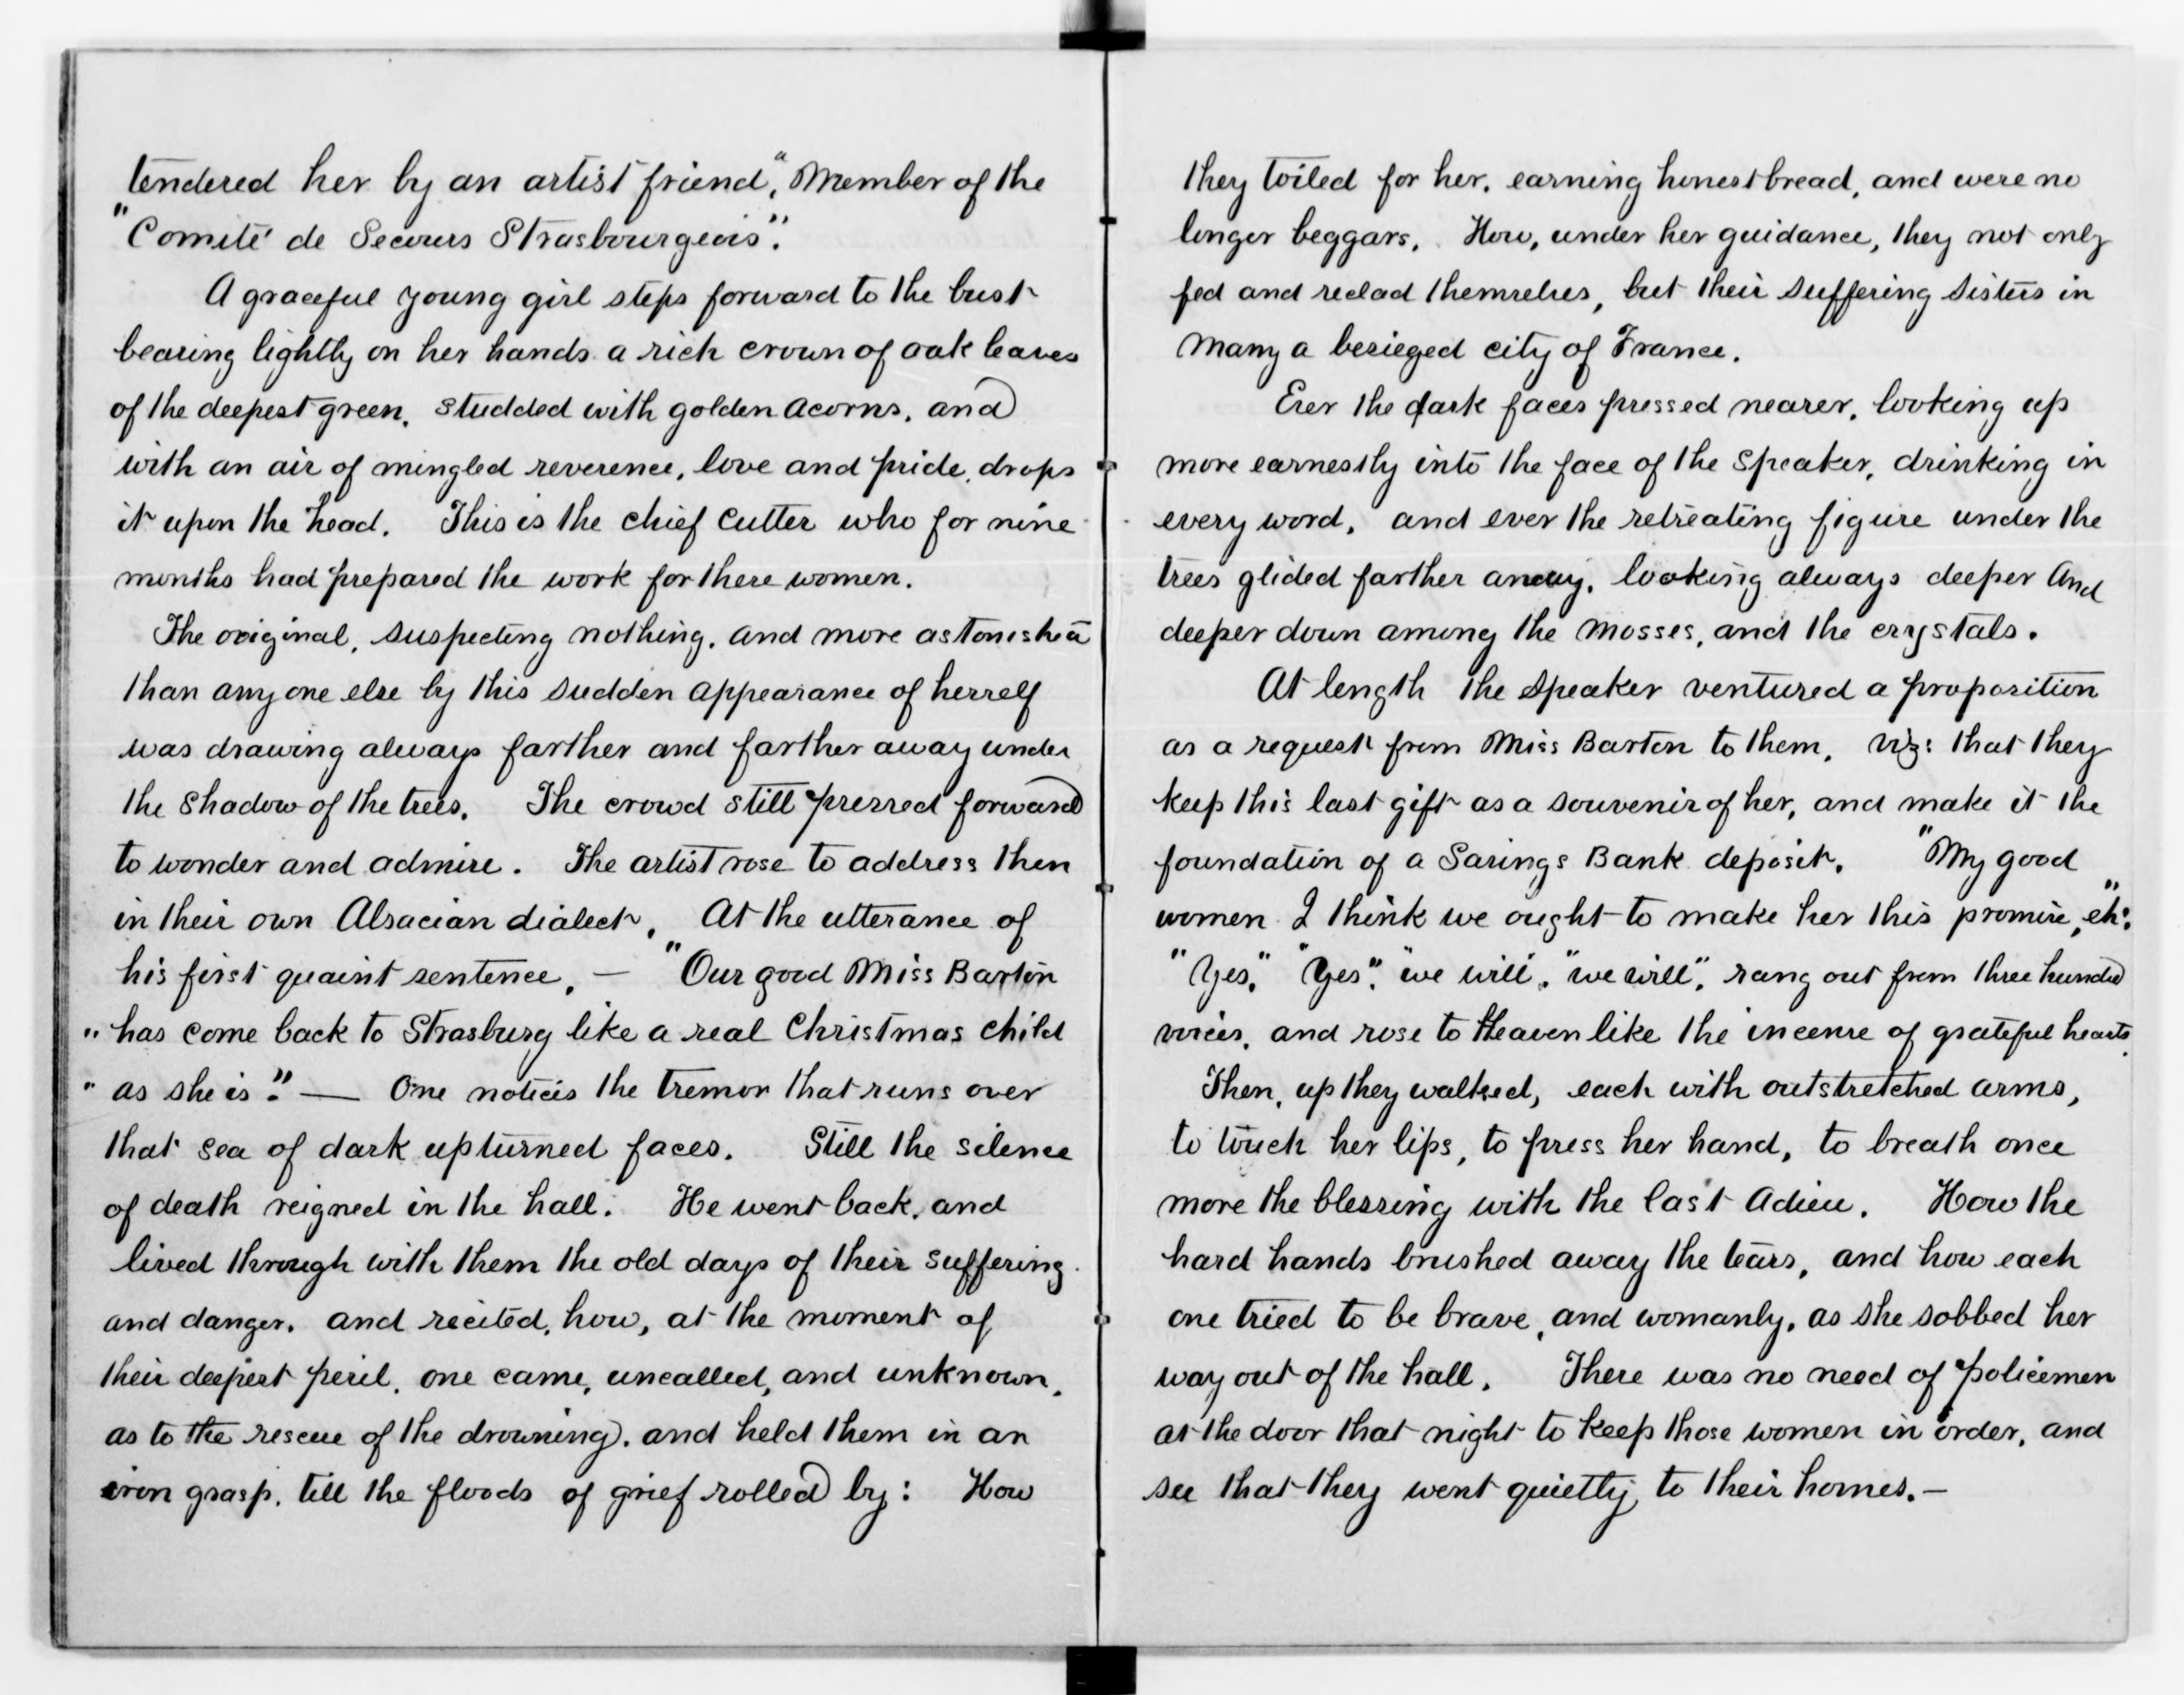 tendered her by an artist friend," Member of the
"Comité de Secours Strasbourgeois".
A graceful young girl steps forward to the bust
bearing lightly on her hands a rich crown of oak leaves
of the deepest green, studded with golden acorns, and
with an air of mingled reverence, love and pride, drops
it upon the head. This is the chief cutter who for nine
months had prepared the work for these women.
The original, suspecting nothing, and more astonished
than any one else by this sudden appearance of herself
was drawing always farther and farther away under
the shadow of the trees. The crowd still pressed forward
to wonder and admire. The artist rose to address then
in their own Alsacian dialect. At the utterance of
his first quaint sentence, — "Our good Miss Barton
" has come back to Strasburg like a real Christmas child
" as she is". — One notices the tremor that runs over
that sea of dark upturned faces. Still the silence
of death reigned in the hall. He went back, and
lived through with them the old days of their suffering
and danger, and recited, how, at the moment of
their deepest peril, one came, uncalled, and unknown,
as to the rescue of the drowning, and held them in an
iron grasp, till the floods of grief rolled by: How
they toiled for her, earning honest bread, and were no
longer beggars. How, under her guidance, they not only
fed and reclad themselves, but their suffering sisters in
many a besieged city of France.
Ever the dark faces pressed nearer, looking up
more earnestly into the face of the speaker, drinking in
every word, and ever the retreating figure under the
trees glided farther away, looking always deeper and
deeper down among the mosses, and the crystals.
At length the speaker ventured a proposition
as a request from Miss Barton to them, viz: that they
keep this last gift as a souvenir of her, and make it the
foundation of a Savings Bank deposit. "My good
women I think we ought to make her this promise, eh".
"Yes," "Yes". "we will. "we will", rang out from three hundred
voices, and rose to Heaven like the incense of grateful hearts.
Then, up they walked, each with outstretched arms,
to touch her lips, to press her hand, to breath once
more the blessing with the last adieu. How the
hard hands brushed away the tears, and how each
one tried to be brave, and womanly, as she sobbed her
way out of the hall. There was no need of policemen
at the door that night to keep those women in order, and
see that they went quietly to their homes.—